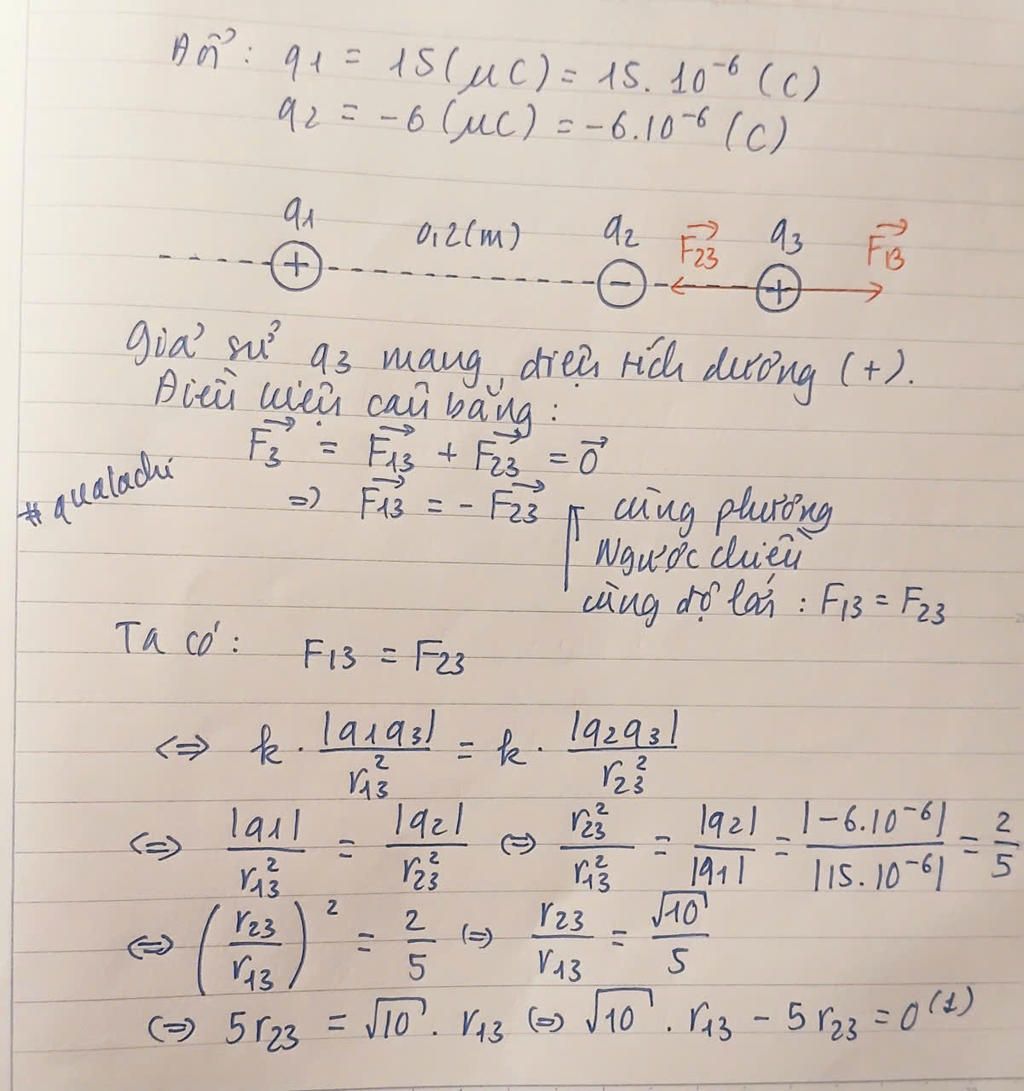 Đổi: q1 = 15(μC) = 15.10⁻⁶ (C)
q2 = -6(μC) = -6.10⁻⁶ (C)
q1 0,2(m) q2 F₂₃→ q3 F₁₃→
+ - +
Giả sử q3 mang điện tích dương (+).
Điều kiện cân bằng:
F₃→ = F₁₃→ + F₂₃→ = 0→
#qualachi
=> F₁₃→ = - F₂₃→ cùng phương
Ngược chiều
cùng độ lớn : F₁₃ = F₂₃
Ta có: F₁₃ = F₂₃
<=> k . |q1q3| / r₁₃² = k . |q2q3| / r₂₃²
<=> |q1| / r₁₃² = |q2| / r₂₃² <=> r₂₃² / r₁₃² = |q2| / |q1| = |-6.10⁻⁶| / |15.10⁻⁶| = 2/5
<=> (r₂₃ / r₁₃)² = 2/5 <=> r₂₃ / r₁₃ = √10 / 5
<=> 5r₂₃ = √10 . r₁₃ <=> √10 . r₁₃ - 5r₂₃ = 0 (1)